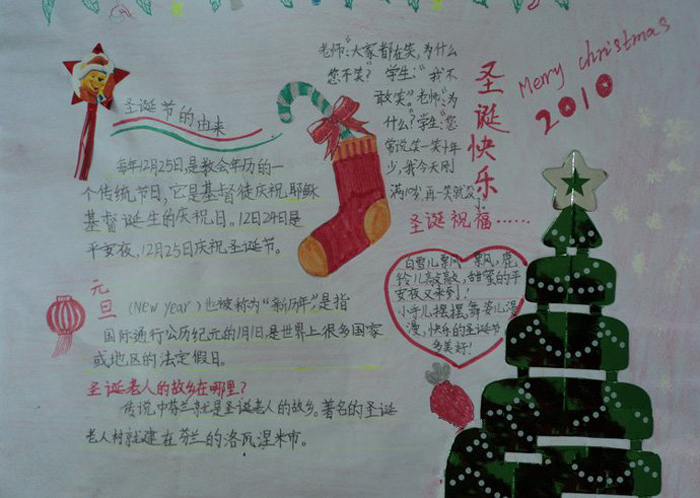 圣诞节的由来
每年12月25日,是教会年历的一
个传统节日,它是基督徒庆祝耶稣
基督诞生的庆祝日。12月24日是
平安夜,12月25日庆祝圣诞节。
元旦
(New year)也被称为“新历年”是指
国际通行公历纪元的1月1日,是世界上很多国家
或地区的法定假日。
圣诞老人的故乡在哪里?
传说中芬兰就是圣诞老人的故乡。著名的圣诞
老人村就建在芬兰的洛瓦涅米市。
老师:“大家都在笑,为什么
您不笑?”学生:“我不
敢笑。”老师:“为
什么?”学生:“您
常说笑一笑十年
少,我今天刚
满10岁,再一笑就没
圣诞快乐
Merry christmas
2010
圣诞祝福……
白雪儿飘
飘风,鹿
铃儿敲敲敲,甜蜜的平
安夜又来到!
小手儿摆摆,舞姿儿漫
漫,快乐的圣诞节
多美好!